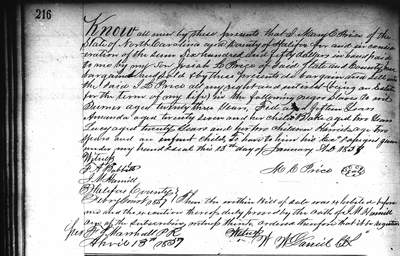 216
Know all men by these presents that I Mary C Price of the
State of North Carolina and County of Halifax for and in consid
eration of the sum Six hundred and fifty dollars in hand paid
to me by my Son Josiah L Price of said State and County have
bargained and sold & by these presents do bargain and sell unto
the said J L Price all my right and interest (being an Estate
for the term of my life) in the following negro Slaves to wit
aged twenty three Years, fifteen Years
Amanda aged twenty Seven and her child Blake aged two Years
Lucy aged twenty Years and her two children Harriet aged two
Years and an infant child, To have to him his heirs & assigns given
under my hand & seal this 13th day of January AD 1857
Witness
M. C. Price Seal
J M Hamill
Halifax County
Court 1857 Then the within Bill of sale was exhibited before
me and the execution thereof duly proved by the oath of J M Hamill
one of the subscribing witness thereto ordered therefore that it be registered
Marshall P.R. Witness
April 13th 1857 W W Daniel Clk